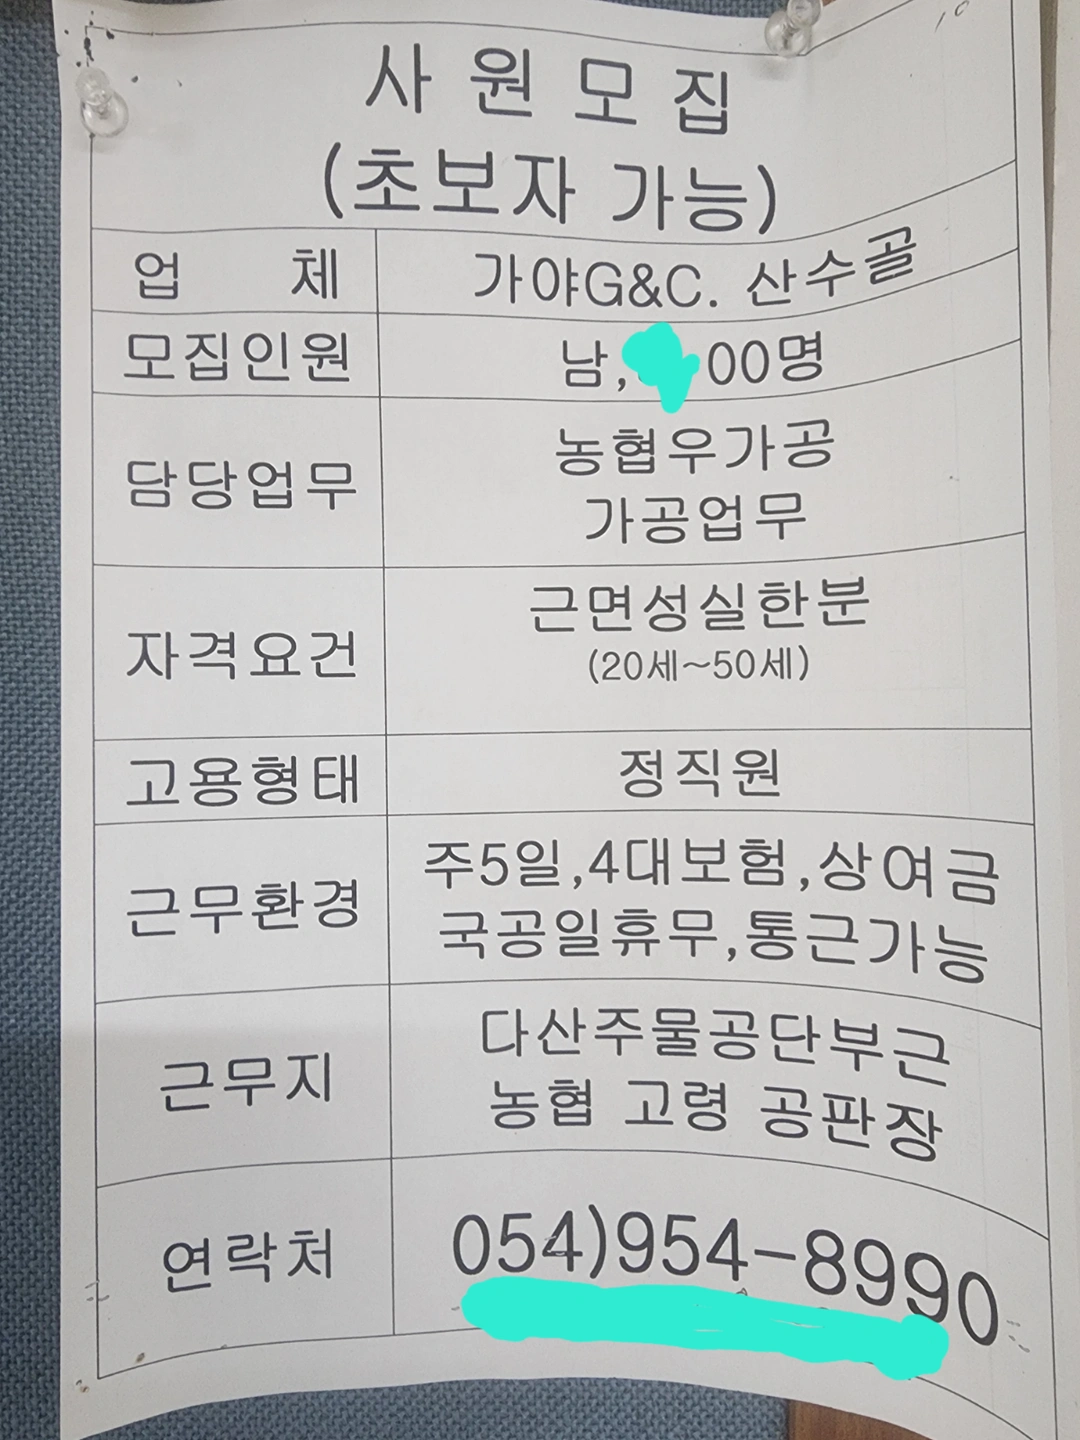 사 원 모 집
(초보자 가능)
업 체 가야G&C. 산수골
모집인원 남, 00명
담당업무 농협우가공
가공업무
자격요건 근면성실한분
(20세~50세)
고용형태 정직원
근무환경 주5일,4대보험,상여금
국공일휴무,통근가능
근무지 다산주물공단부근
농협 고령 공판장
연락처 054)954-8990